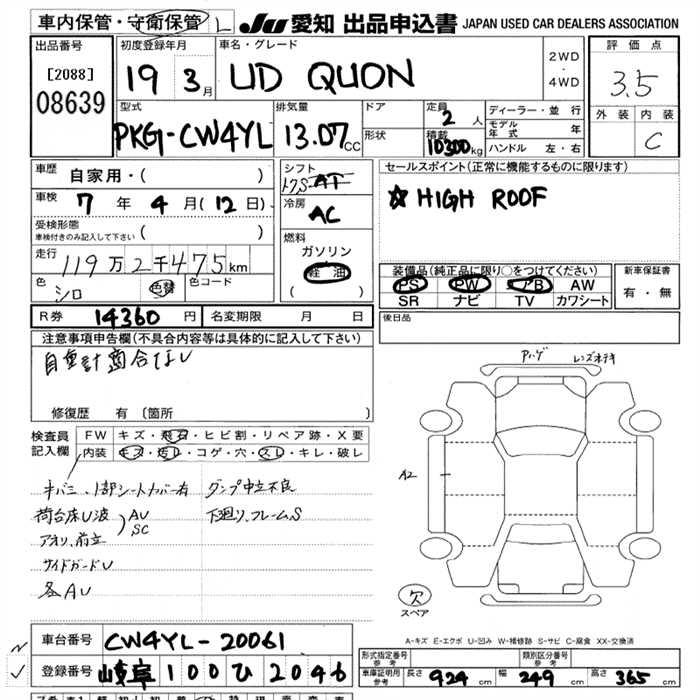 車内保管・守衛保管 L JU 愛知 出品申込書 JAPAN USED CAR DEALERS ASSOCIATION
出品番号
[2088]
08639
初度登録年月
19 3月
車名・グレード
UD QUON
2WD
・
4WD
評価点
3.5
外装 内装
C
型式
PKG-CW4YL
排気量
13.07CC
ドア
形状
定員 2人
積載 10300kg
ディーラー・並行
モデル年式 年
ハンドル 左・右
車歴 自家用・( )
車検 7年 4月(12日)
受検形態
車検付きのみ記入して下さい ( )
走行 119万2千475km
色 シロ 色替 色コード
シフト
7S AT
冷房
AC
燃料
ガソリン
軽油
( )
セールスポイント(正常に機能するものに限ります)
☆ HIGH ROOF
装備品(純正品に限り○をつけてください)
PS PW アB AW
SR ナビ TV カワシート
新車保証書
有・無
R券 14360円 名変期限 月 日
後日品
注意事項申告欄(不具合内容等は具体的に記入して下さい)
自重計適合なし
修復歴 有 (箇所 )
検査員記入欄
FW キズ・飛石・ヒビ割・リペア跡・X要
内装 キズ・汚レ・コゲ・穴・スレ・キレ・破レ
キバミ、1部シートカバー有
ダンプ中立不良
荷台床U波 AU
SC
下廻り、フレームS
アオリ、前立
サイドガードU
各AU
アハゲ レンズホテキ
A2
欠
スペア
A-キズ E-エクボ U-凹み W-補修跡 S-サビ C-腐食 XX-交換済
車台番号 CW4YL-20061
登録番号 岐阜 100 ひ 2046
形式指定番号
参考
類別区分番号
参考
車庫証明用
参考
長さ 924cm 幅 249cm 高さ 365cm